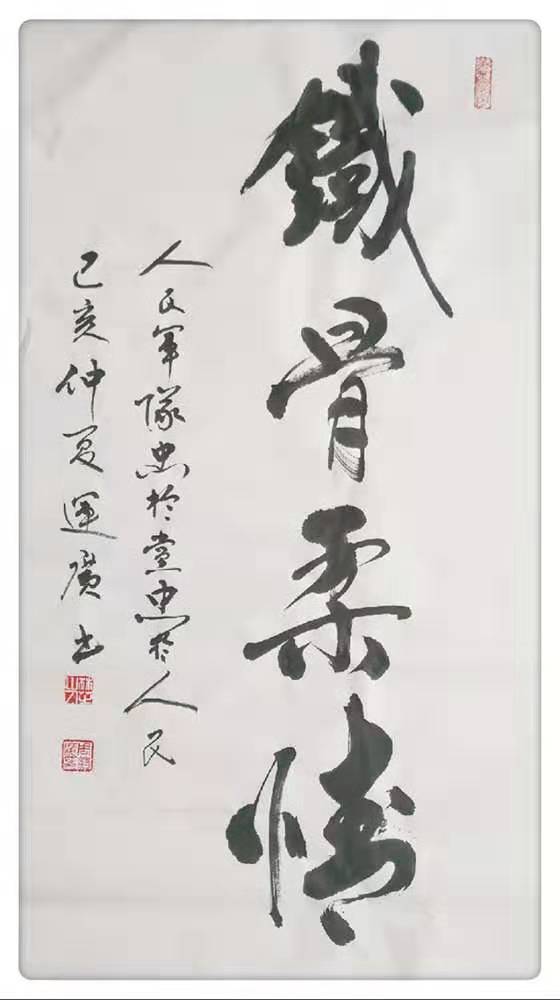 鐵骨柔情
人民軍隊忠於黨忠於人民
己亥仲夏運廣书